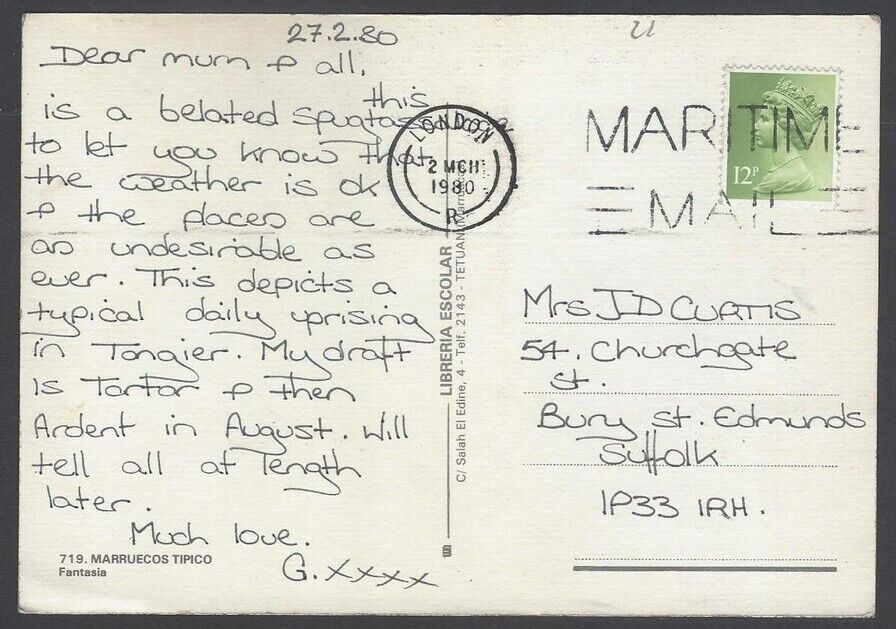 27.2.80
Dear mum & all,
this
is a belated
to let you know that
the weather is ok
& the places are
as undesirable as
ever. This depicts a
typical daily uprising
in Tangier. My draft
is Tartar & then
Ardent in August. Will
tell all at length
later.
Much love.
G. xxxx
719. MARRUECOS TIPICO
Fantasia
LIBRERIA ESCOLAR
C/ Salah El Edine, 4 - Telf. 2143 - TETUAN
LONDON
2 MCH
1980
R
MARITIME
MAIL
12P
Mrs J D CURTIS
54. Churchgate
St.
Bury St. Edmunds
Suffolk
IP33 1RH.